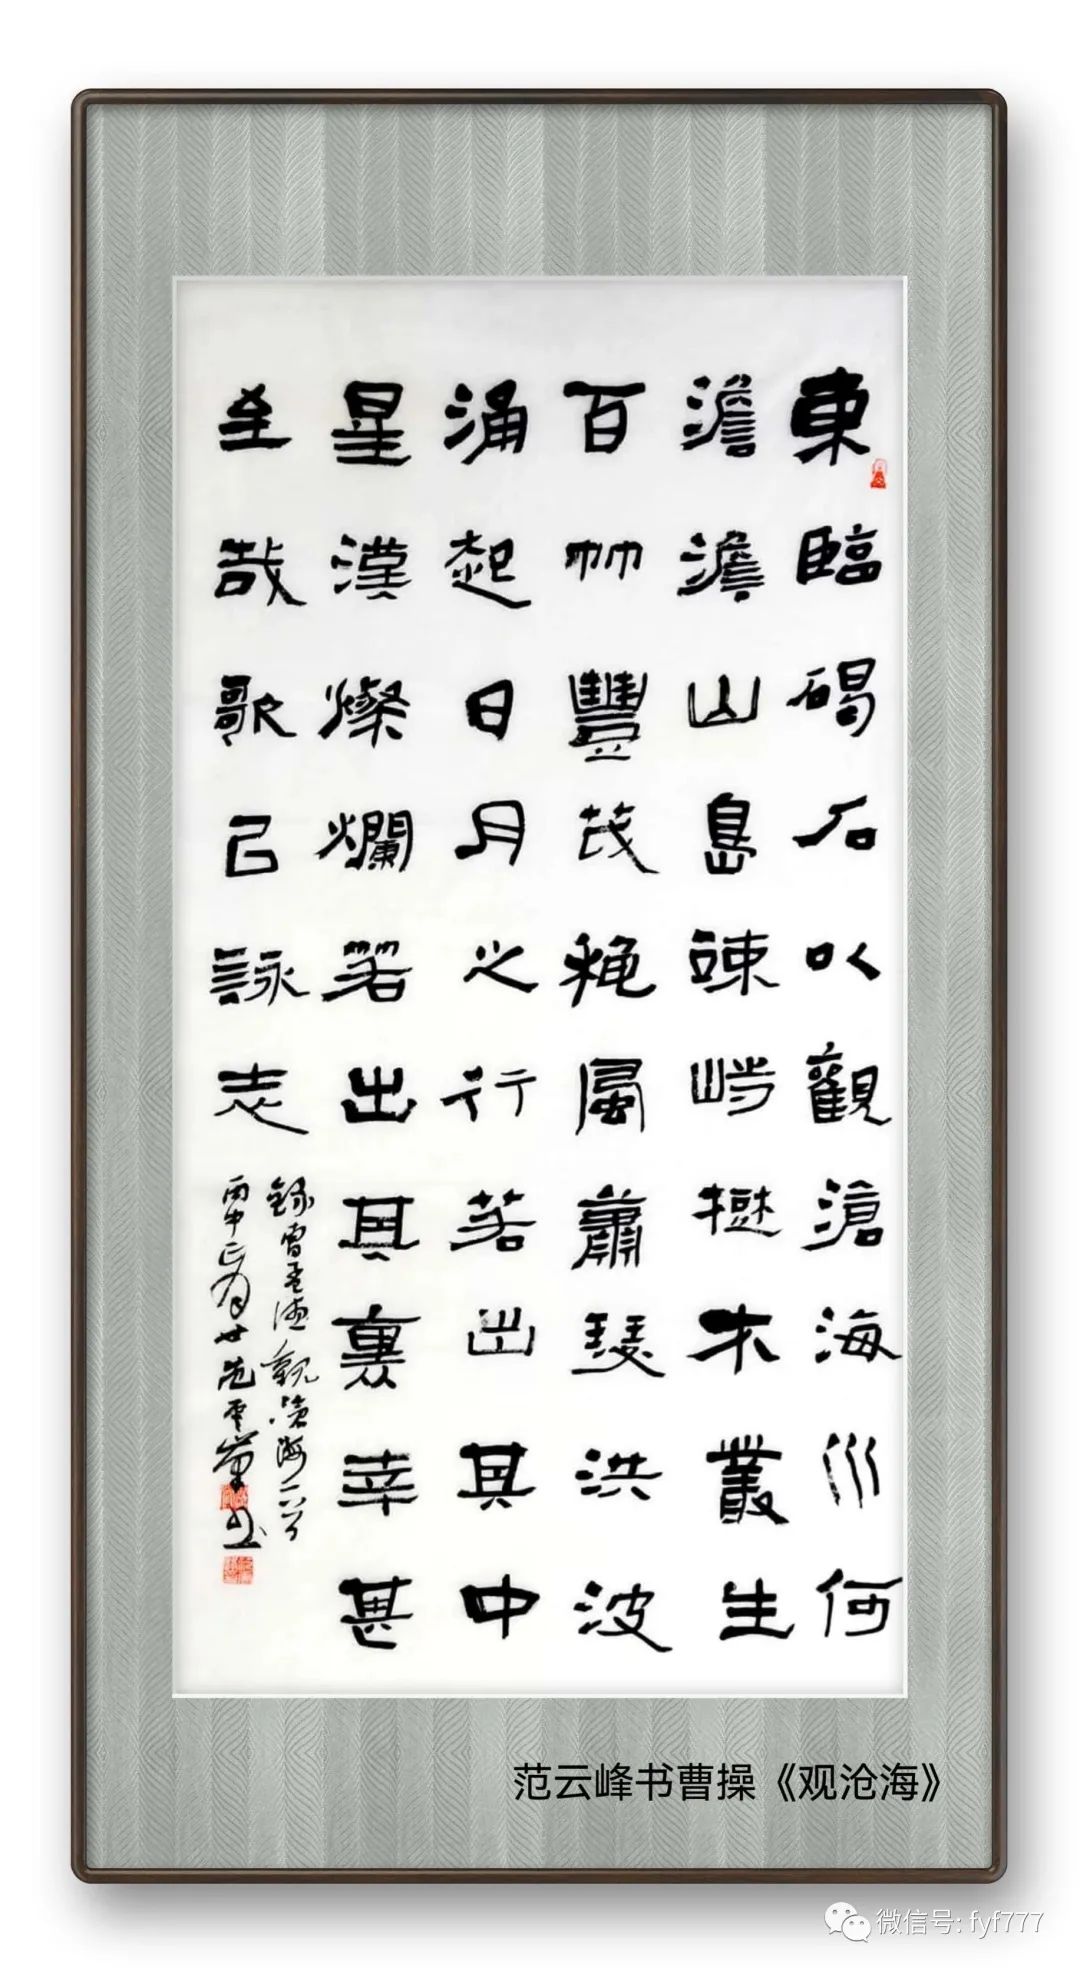 東臨碣石以觀滄海水何
澹澹山島竦峙樹木叢生
百艸豐茂秋風蕭瑟洪波
涌起日月之行若出其中
星漢燦爛若出其裏幸甚
至哉歌㠯詠志
錄曹孟德觀滄海一首
丙申正月廿范雲峯書
范云峰书曹操《观沧海》
微信号: fyf777